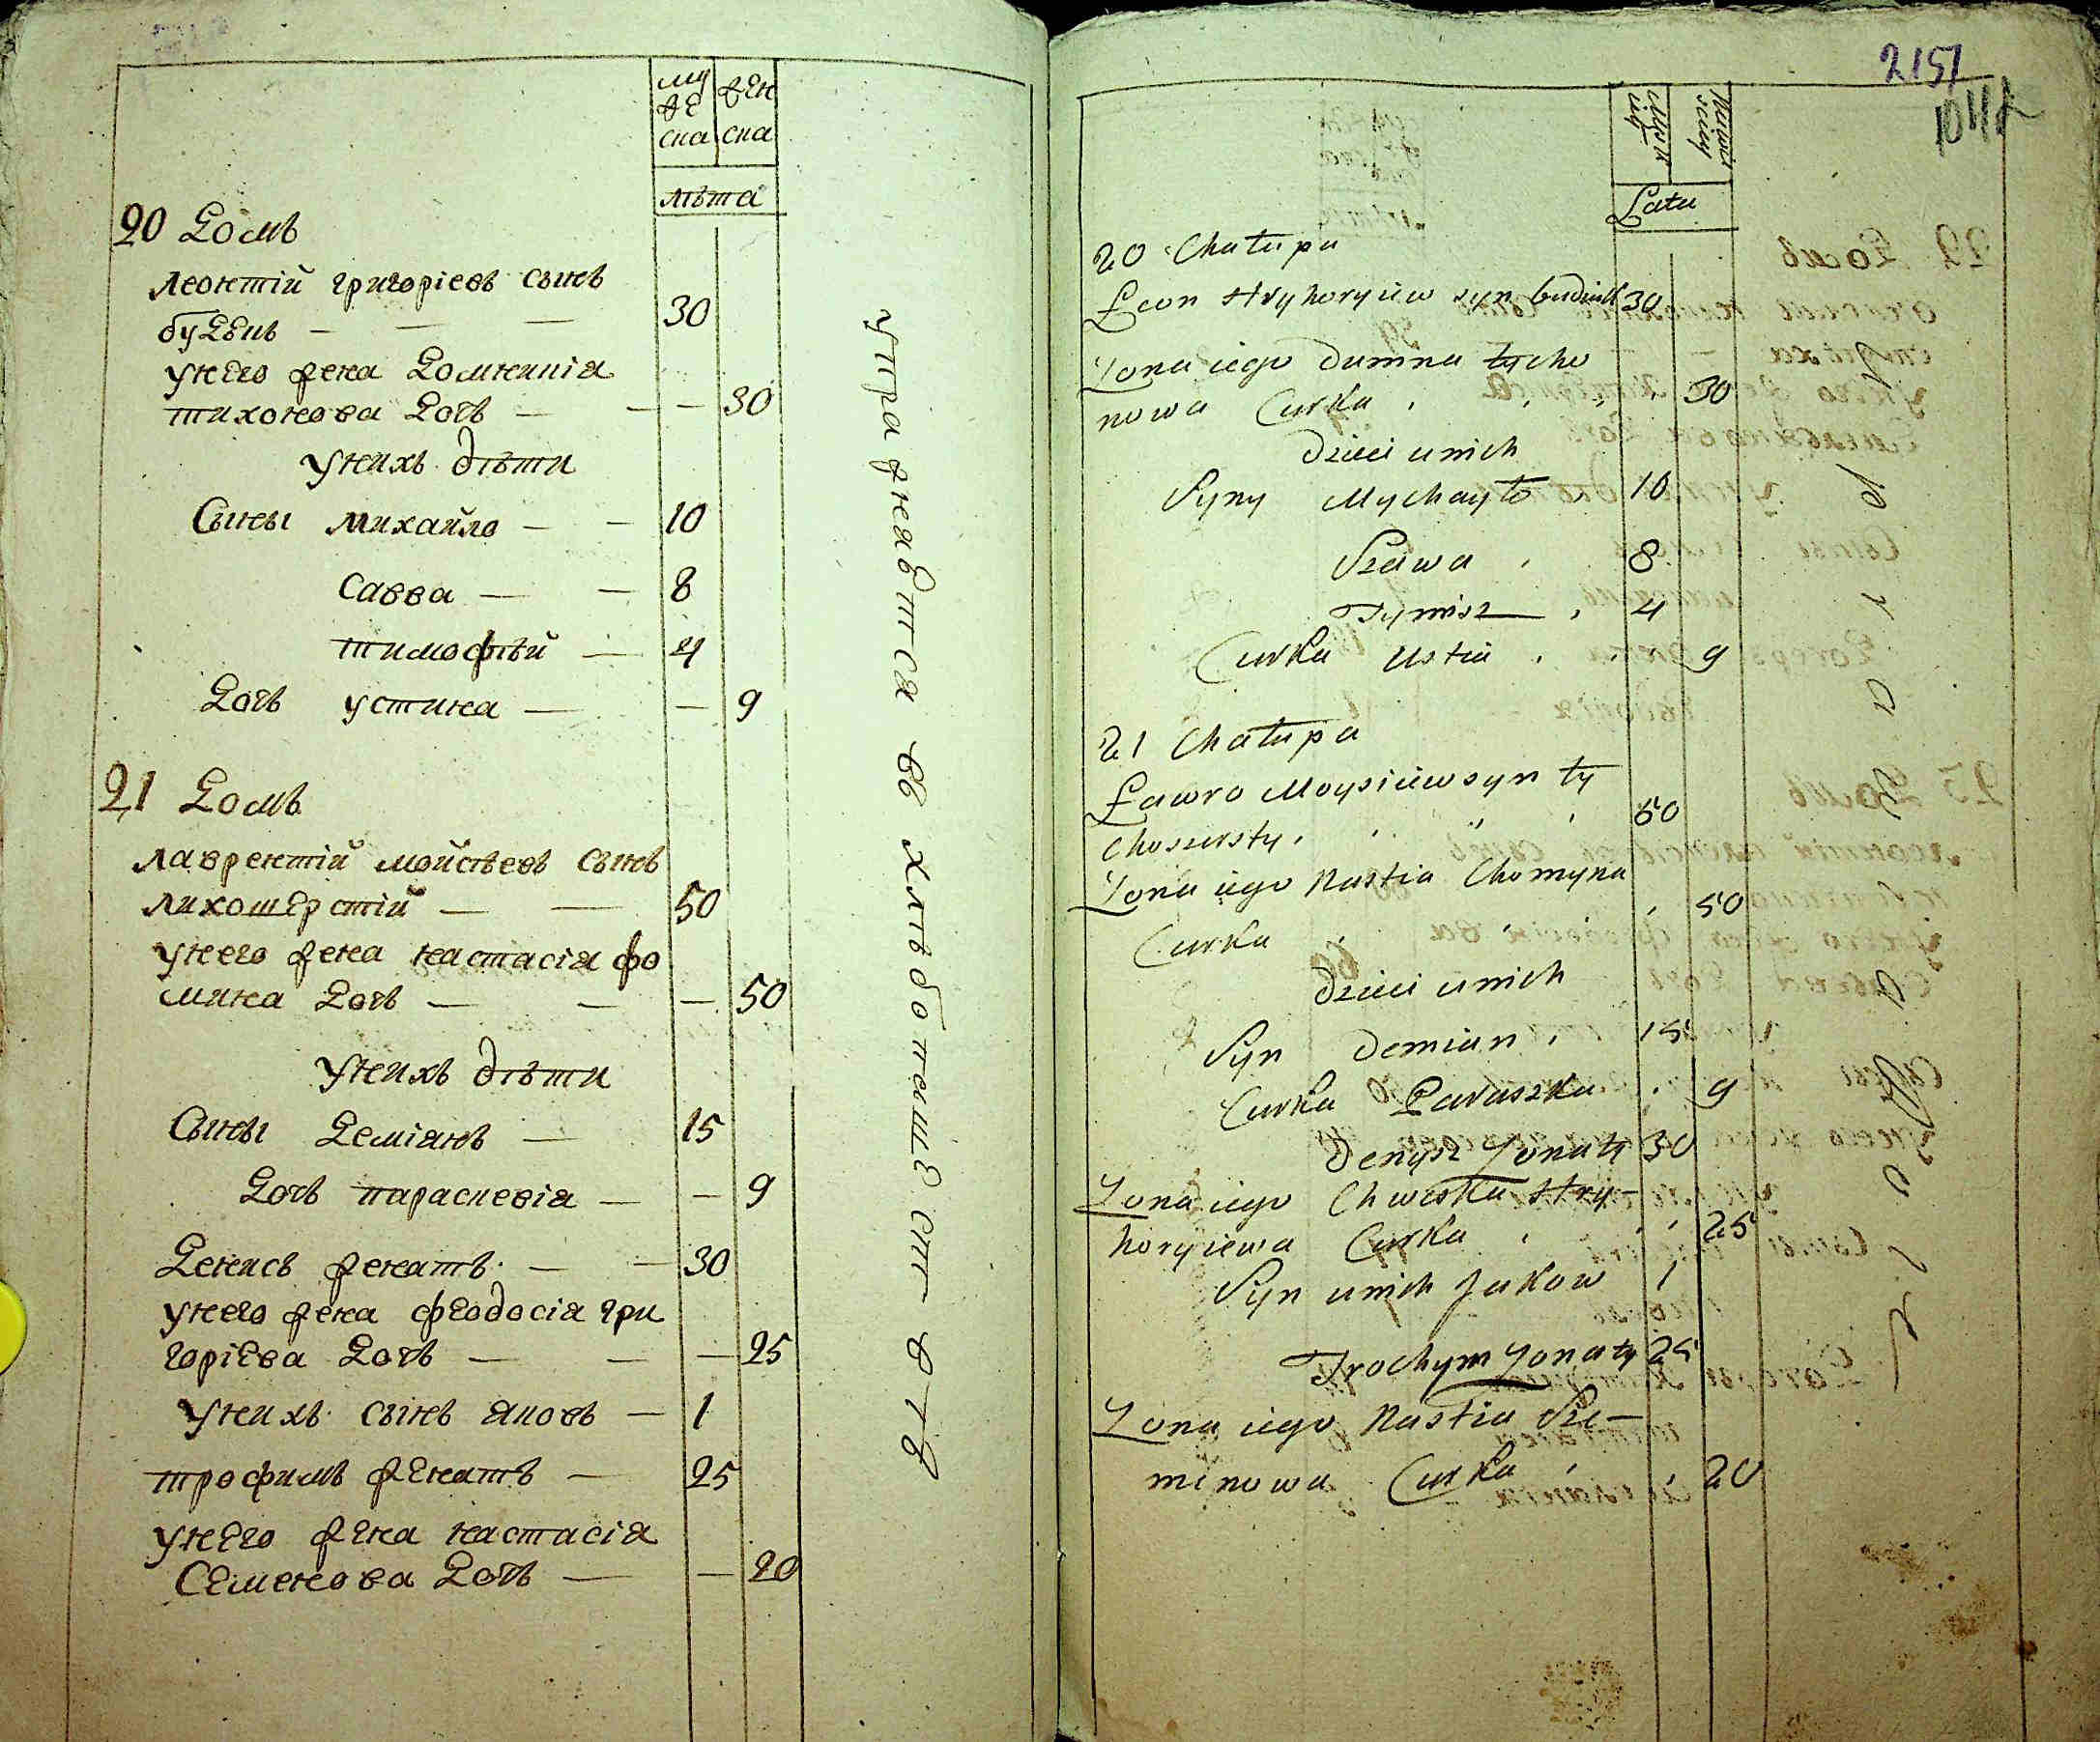 мужеска женска
лѣта
20 Домъ
леонтій григоріевъ сынъ
будзнъ — — — 30
унего жена Домникія
тихонова Дочь — — — 30
унихъ дѣти
Сыны михайло — — 10
савва — — 8
тимофѣй — 4
Дочь устина — — 9
21 Домъ
лаврентій мойсѣевъ сынъ
лихошерстій — — 50
унего жена настасія фо
мина Дочь — — — 50
унихъ дѣти
Сыны Деміянъ — 15
Дочь параскевія — — 9
Денисъ женатъ — — 30
унего жена феодосія гри
горіева Дочь — — — 25
унихъ сынъ яковъ — 1
трофимъ женатъ — 25
унего жена настасія
Семенова Дочь — — 20
упражняются въ хлѣбопашествѣ
2151
Lata
20 Chałupa
Leon Hryhoryiew syn 30
Zona iego Dumna tycho
nowa Curka 30
Dzieci unich
Syny Mychayło 10
Szawa 8
Tymisz 4
Curka Ustia 9
21 Chałupa
Ławro Moysiiew syn ły
choszersty 50
Zona iego Nastia Chomyna
Curka 50
Dzieci unich
Syn Demian 15
Curka Paraszka 9
Denysz Zonaty 30
Zona iego Chweska Hry-
horyiewa Curka 25
Syn unich Jakow 1
Trochym Zonaty 25
Zona iego Nastia Sze-
minowa Curka 20